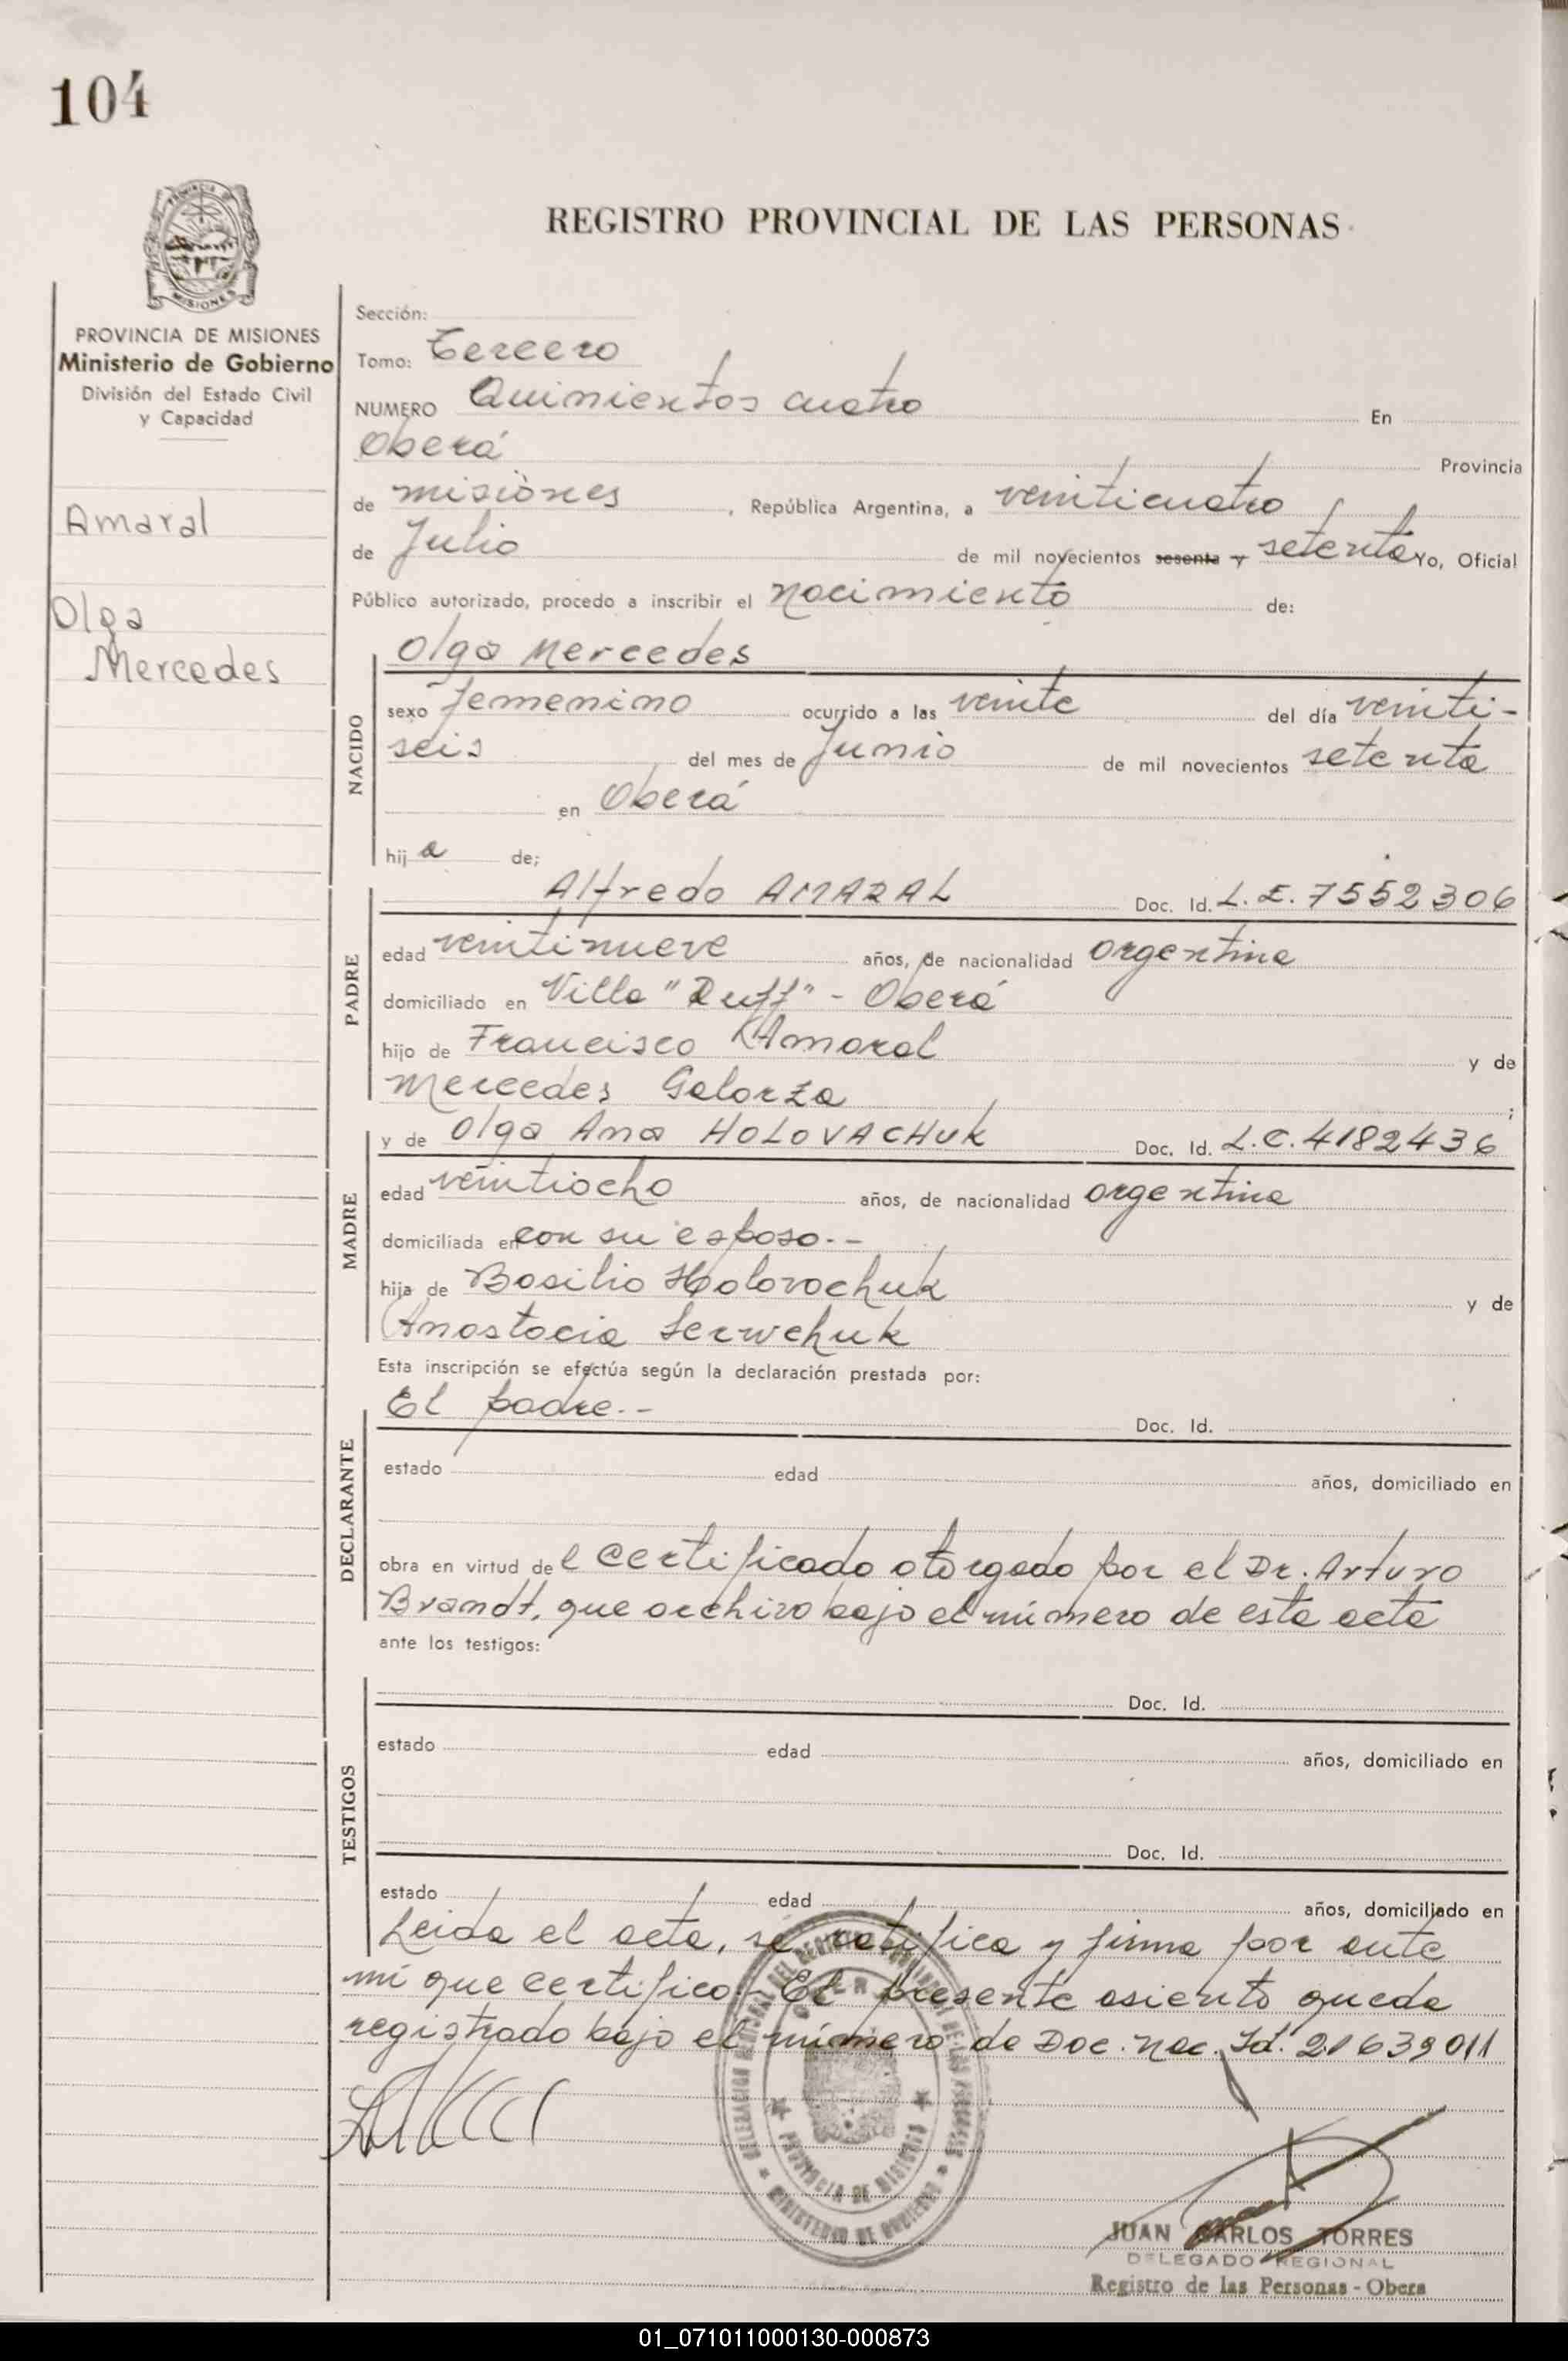 104
REGISTRO PROVINCIAL DE LAS PERSONAS
MISIONES
PROVINCIA DE MISIONES
Ministerio de Gobierno
División del Estado Civil
y Capacidad
Amaral
Olga
Mercedes
Sección:
Tomo: Tercero
NUMERO Quinientos cuatro En
Oberá Provincia
de misiones, República Argentina, a veinticuatro
de Julio de mil novecientos sesenta y setenta Yo, Oficial
Público autorizado, procedo a inscribir el nacimiento de:
NACIDO
Olga Mercedes
sexo femenino ocurrido a las veinte del día veinti-
seis del mes de Junio de mil novecientos setenta
en Oberá
hij a de;
PADRE
Alfredo AMARAL Doc. Id. L.E. 7552306
edad veintinueve años, de nacionalidad argentina
domiciliado en Villa "Ruff" - Oberá
hijo de Francisco Amaral y de
Mercedes Galarza ;
MADRE
y de Olga Ana HOLOVACHUK Doc. Id. L.C. 4182436
edad veintiocho años, de nacionalidad argentina
domiciliada en con su esposo.--
hija de Basilio Holovachuk y de
Anastacia Serwchuk
Esta inscripción se efectúa según la declaración prestada por:
DECLARANTE
El padre.-- Doc. Id.
estado edad años, domiciliado en
obra en virtud de l certificado otorgado por el Dr. Arturo
Brandt, que archivo bajo el número de esta acta
ante los testigos:
TESTIGOS
Doc. Id.
estado edad años, domiciliado en
Doc. Id.
estado edad años, domiciliado en
Leida el acta, se ratifica y firma por ante
mi que certifico.- El presente asiento queda
registrado bajo el número de Doc. Nac. Id. 21639011
PROVINCIA DE MISIONES
MINISTERIO DE GOBIERNO
JUAN CARLOS TORRES
DELEGADO REGIONAL
Registro de las Personas - Obera
01_071011000130-000873